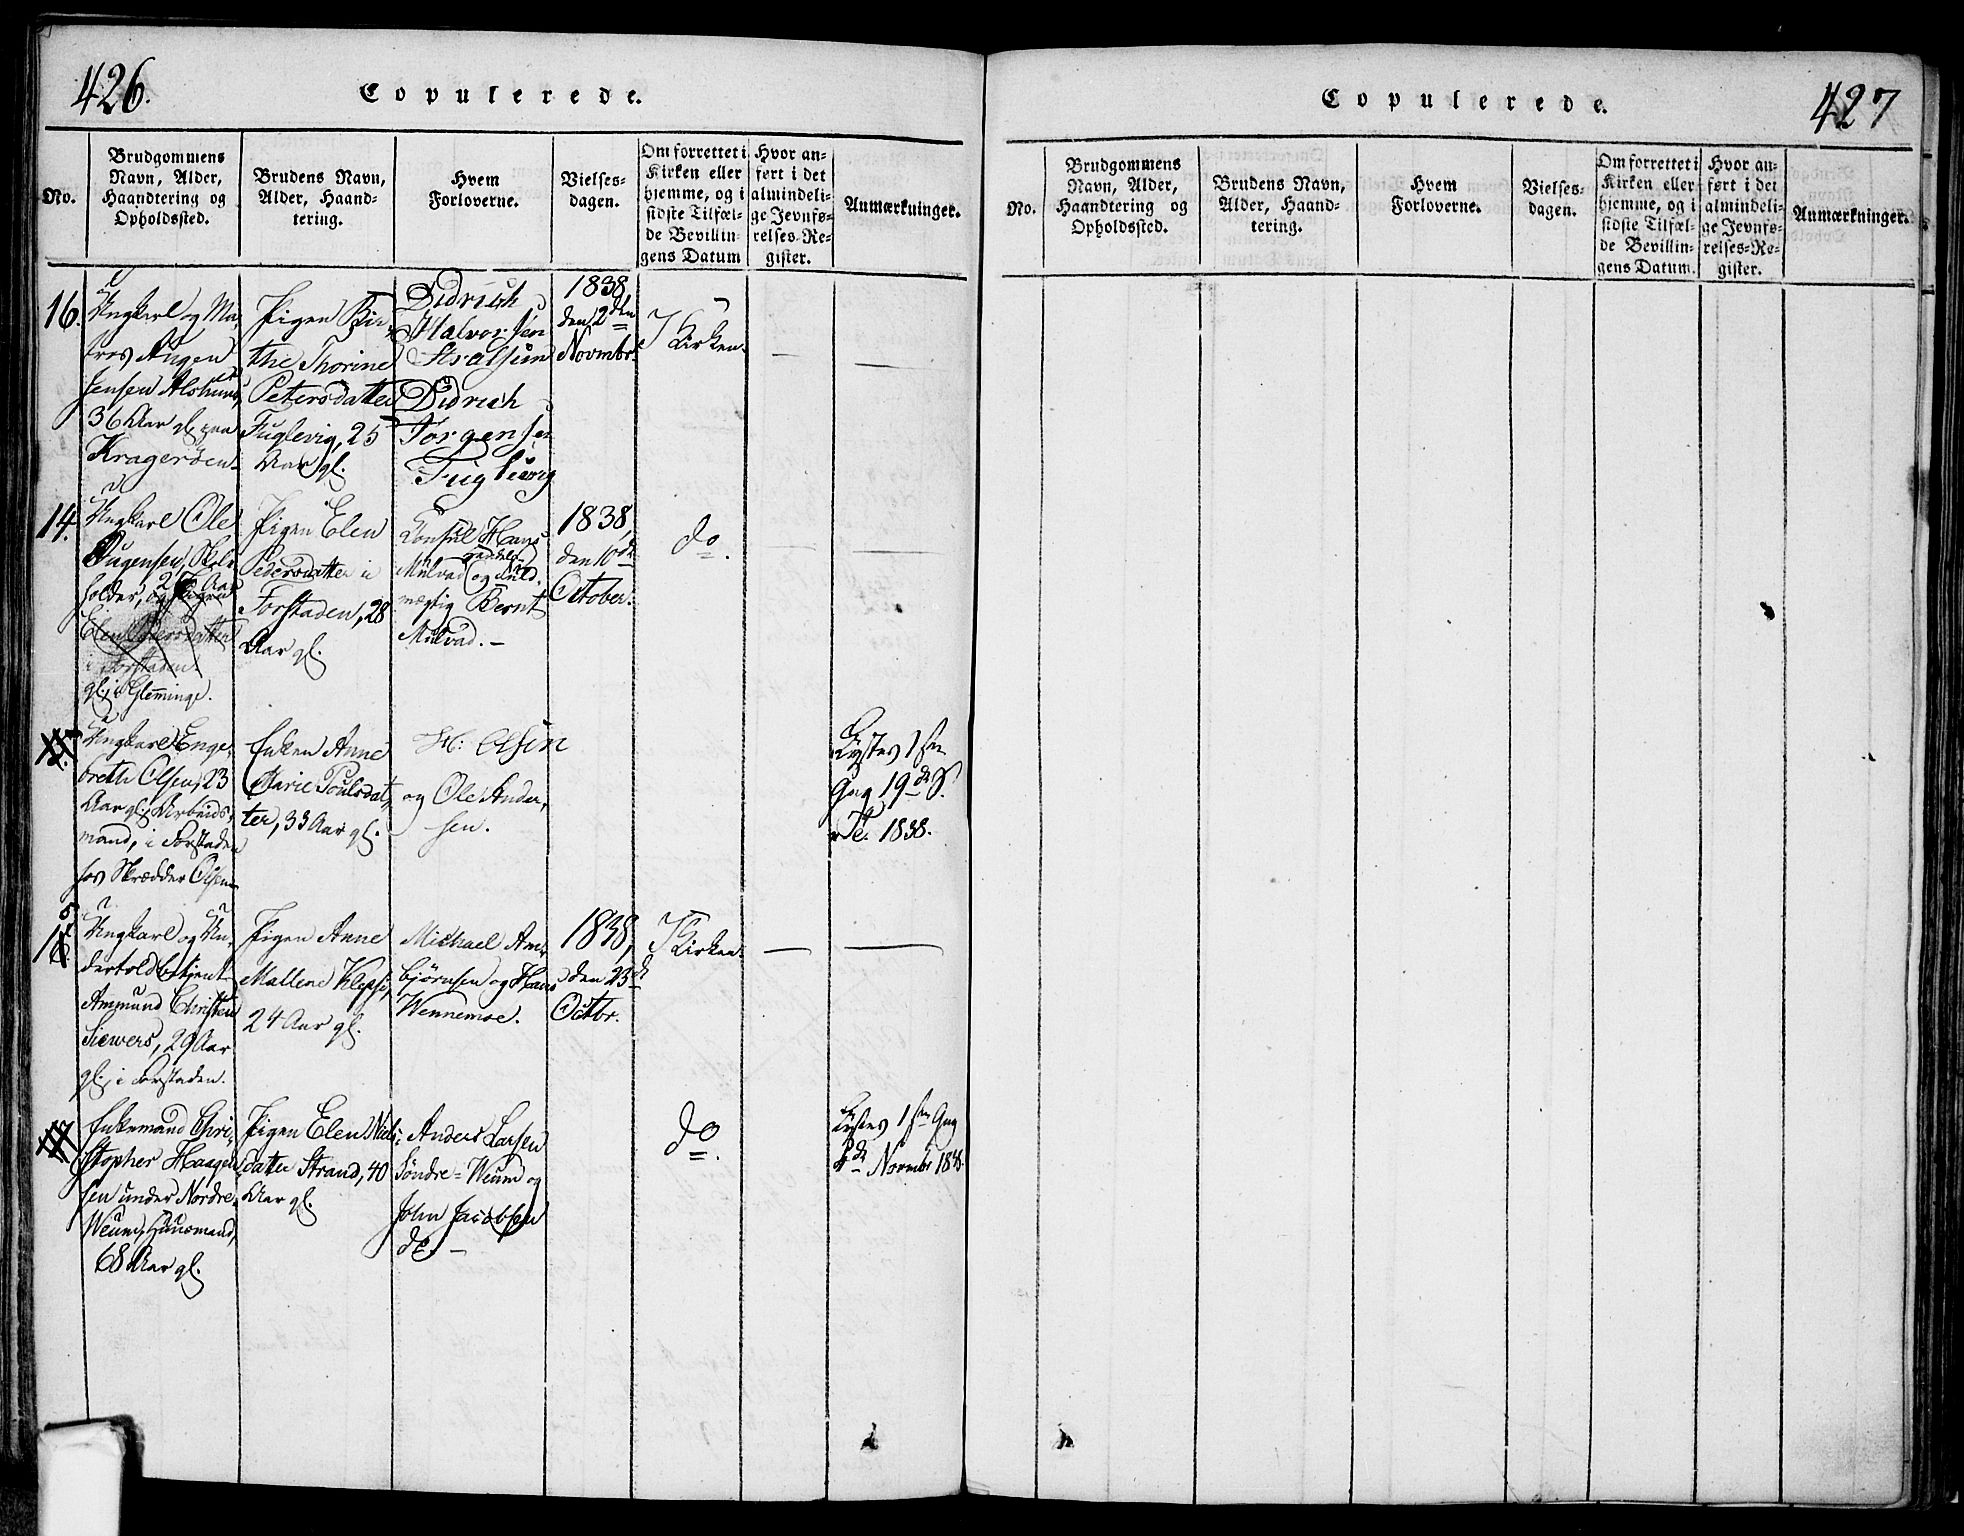 426.
Copulerede.
No.
Brudgommens
Navn, Alder,
Haandtering og
Opholdssted.
Brudens Navn,
Alder, Haand-
tering.
Hvem
Forloverne.
Vielses-
dagen.
Om forrettet i
Kirken eller
hjemme, og i
sidste Tilfæl-
de Bevillin-
gens Datum
Hvor an-
ført i det
almindeli-
ge Jevnfø-
relses-Re-
gister.
Anmærkninger.
16.
Ungkarl og Ma-
tros Augen
Jensen
36 Aar gl. paa
Kragerøen
Pigen Bir-
the Thorine
Petersdatter
Fuglevig, 25
Aar gl.
Didrich
Halvorsen
Didrich
Torgensen
Fuglevig
1838
den 2den
Novmbr.
I Kirken.
14.
Ungkarl Ole
Augensen,
holder, 26 Aar
og Pigen
Elen Pedersdatter
i Forstaden
gl. i Glemminge.
Pigen Elen
Pedersdatter i
Forstaden, 28
Aar gl.
Consul Hans
Mulvad og Fuld-
mægtig Bernt
Mulvad. —
1838,
den 10de
October.
do.
Ungkarl Enge-
breth Olsen, 23
Aar gl. Arbeids-
mand, i Forstaden
hos Skrædder Olsen
Enken Anne
Marie Poulsdat-
ter, 33 Aar gl.
H: Olsen
og Ole Ander-
sen.
Lystes 1ste
Gng 19de S.
Tr. 1838.
15.
Ungkarl og Un-
dertoldbetjent
Ammund Christen
Siewers, 29 Aar
gl., i Forstaden.
Pigen Anne
Mallene Klepsi,
24 Aar gl.
Michael Am-
bjørnsen og Hans
Wennemoe.
1838,
den 23de
Octbr.
I Kirken.
Enkemand Chri-
stopher Haagen-
sen under Nordre-
Weum, Huusmand,
68 Aar gl.
Pigen Elen Niels-
datter Strand, 40
Aar gl.
Anders Larsen
Søndre-Weum og
John Jacobsen
do. —
do.
Lystes 1ste Gng
4de Novmbr 1838.
427
Copulerede.
No.
Brudgommens
Navn, Alder,
Haandtering og
Opholdssted.
Brudens Navn,
Alder, Haand-
tering.
Hvem
Forloverne.
Vielses-
dagen.
Om forrettet i
Kirken eller
hjemme, og i
sidste Tilfæl-
de Bevillin-
gens Datum.
Hvor an-
ført i det
almindeli-
ge Jevnfø-
relses-Re-
gister.
Anmærkninger.